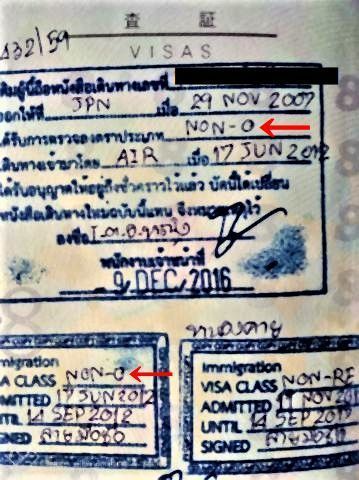 査証
VISAS
432/59
เดิมผู้นี้ถือหนังสือเดินทางเลขที่
ออกให้ที่ JPN เมื่อ 29 NOV 2007
ได้รับการตรวจลงตราประเภท NON-O
เดินทางเข้ามาโดย AIR เมื่อ 17 JUN 2012
ได้รับอนุญาตให้อยู่ถึงชั่วคราวไว้แล้ว บัดนี้ได้เปลี่ยน
หนังสือเดินทางใหม่ฉบับนี้แทน จึงหมายเหตุไว้
ลงชื่อ
พนักงานเจ้าหน้าที่
9 DEC 2016
Immigration
VISA CLASS NON-O
ADMITTED 17 JUN 2012
UNTIL 14 SEP 2012
SIGNED
Immigration
VISA CLASS NON-RE
ADMITTED 17 NOV
UNTIL 14 SEP
SIGNED